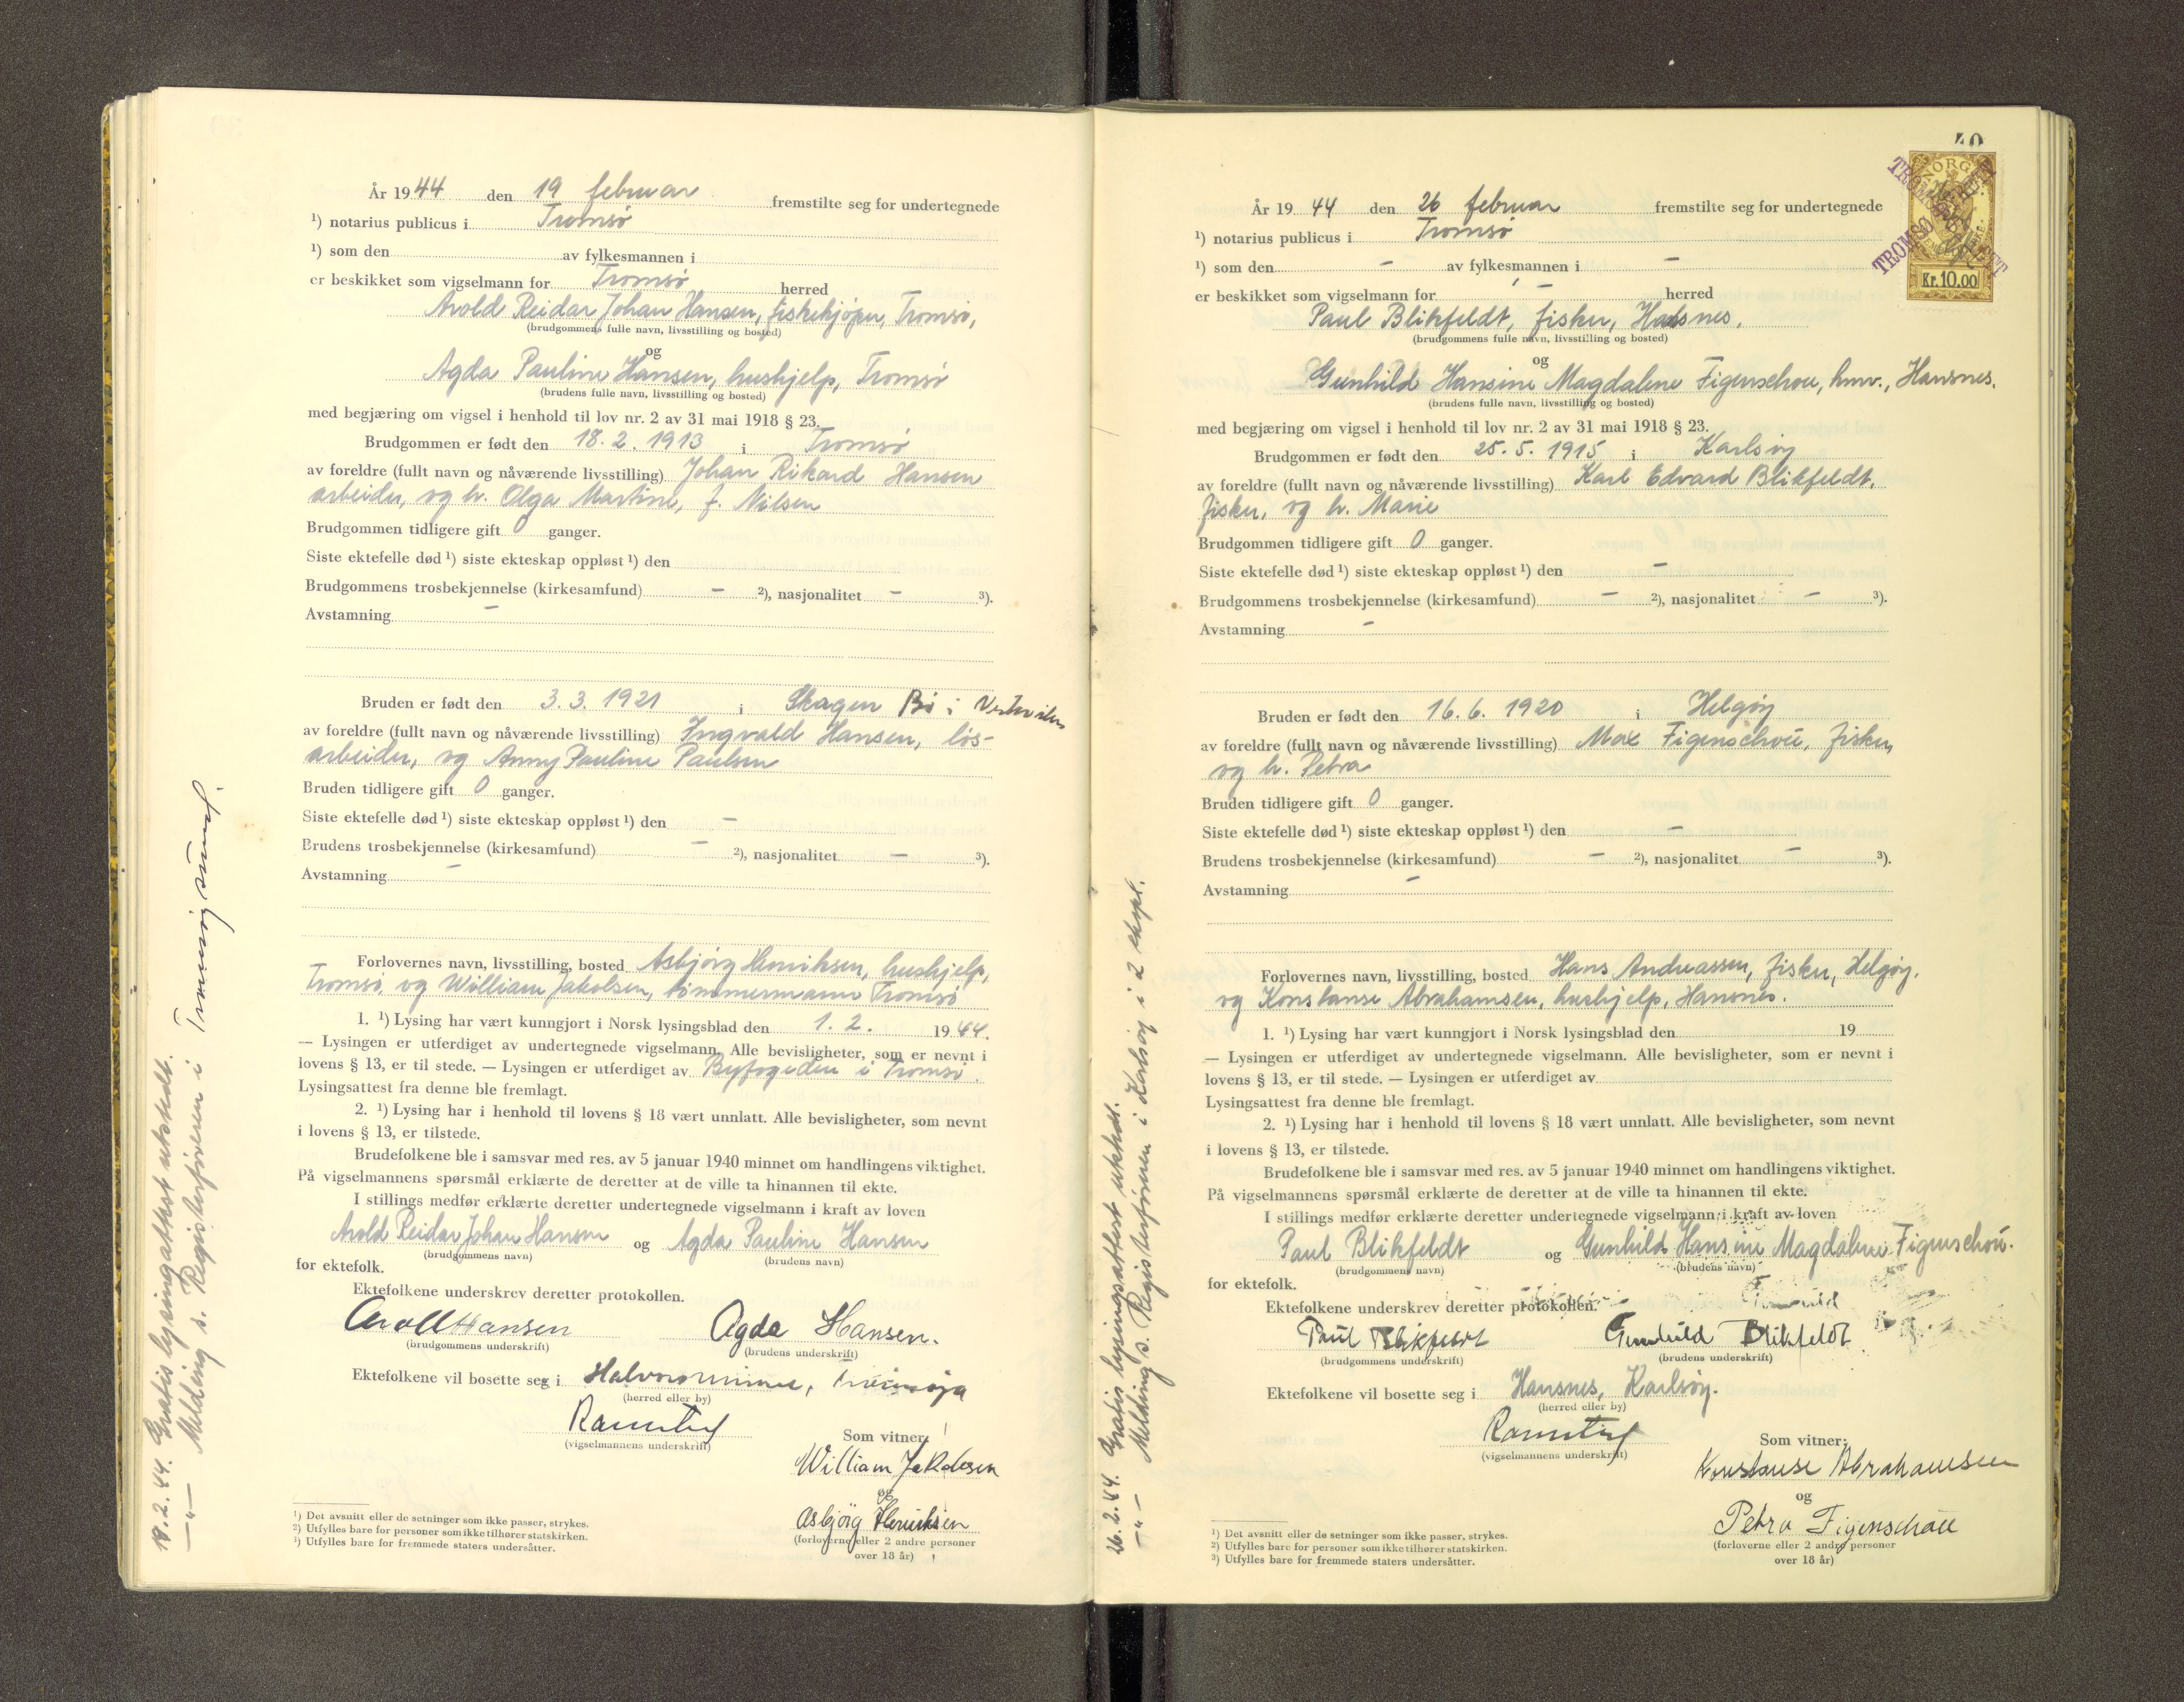 År 1944 den 19 februar fremstilte seg for undertegnede
¹) notarius publicus i Tromsø
¹) som den av fylkesmannen i
er beskikket som vigselmann for Tromsø herred
Arold Reidar Johan Hansen, fiskekjøper, Tromsø,
(brudgommens fulle navn, livsstilling og bosted)
og
Agda Pauline Hansen, hushjelp, Tromsø
(brudens fulle navn, livsstilling og bosted)
med begjæring om vigsel i henhold til lov nr. 2 av 31 mai 1918 § 23.
Brudgommen er født den 18. 2. 1913 i Tromsø
av foreldre (fullt navn og nåværende livsstilling) Johan Rikard Hansen
arbeider, og h. Olga Martine, f. Nilsen
Brudgommen tidligere gift 0 ganger.
Siste ektefelle død ¹) siste ekteskap oppløst ¹) den
Brudgommens trosbekjennelse (kirkesamfund) – ²), nasjonalitet – ³).
Avstamning –
Bruden er født den 3. 3. 1921 i Skagen Bø i Vesterålen
av foreldre (fullt navn og nåværende livsstilling) Ingvald Hansen, løs-
arbeider, og Anny Pauline Paulsen
Bruden tidligere gift 0 ganger.
Siste ektefelle død ¹) siste ekteskap oppløst ¹) den –
Brudens trosbekjennelse (kirkesamfund) – ²), nasjonalitet – ³).
Avstamning –
Forlovernes navn, livsstilling, bosted Asbjørg Henriksen, hushjelp,
Tromsø, og William Jakobsen, tømmermann Tromsø
1. ¹) Lysing har vært kunngjort i Norsk lysingsblad den 1. 2. 1944.
— Lysingen er utferdiget av undertegnede vigselmann. Alle bevisligheter, som er nevnt i
lovens § 13, er til stede. — Lysingen er utferdiget av Byfogeden i Tromsø.
Lysingsattest fra denne ble fremlagt.
2. ¹) Lysing har i henhold til lovens § 18 vært unnlatt. Alle bevisligheter, som nevnt
i lovens § 13, er tilstede.
Brudefolkene ble i samsvar med res. av 5 januar 1940 minnet om handlingens viktighet.
På vigselmannens spørsmål erklærte de deretter at de ville ta hinannen til ekte.
I stillings medfør erklærte deretter undertegnede vigselmann i kraft av loven
Arold Reidar Johan Hansen og Agda Pauline Hansen
(brudgommens navn) (brudens navn)
for ektefolk.
Ektefolkene underskrev deretter protokollen.
Arold Hansen Agda Hansen.
(brudgommens underskrift) (brudens underskrift)
Ektefolkene vil bosette seg i Tromsøya
(herred eller by)
(vigselmannens underskrift)
Som vitner:
William Jakobsen
og
Asbjörg Henriksen
(forloverne eller 2 andre personer
over 18 år)
¹) Det avsnitt eller de setninger som ikke passer, strykes.
²) Utfylles bare for personer som ikke tilhører statskirken.
³) Utfylles bare for fremmede staters undersåtter.
19.2.44. Gratis lysingsattest utstedt.
—"— Melding s. Registerføreren i Tromsøysund.
40
NORGE
TROMSØ
Kr. 10.00
År 1944 den 26 februar fremstilte seg for undertegnede
¹) notarius publicus i Tromsø
¹) som den – av fylkesmannen i –
er beskikket som vigselmann for – herred
Paul Blikfeldt, fisker, Hansnes.
(brudgommens fulle navn, livsstilling og bosted)
og
Gunhild Hansine Magdalene Figenschou, hmv., Hansnes.
(brudens fulle navn, livsstilling og bosted)
med begjæring om vigsel i henhold til lov nr. 2 av 31 mai 1918 § 23.
Brudgommen er født den 25. 5. 1915 i Karlsøy
av foreldre (fullt navn og nåværende livsstilling) Karl Edvard Blikfeldt,
fisker, og h. Marie
Brudgommen tidligere gift 0 ganger.
Siste ektefelle død ¹) siste ekteskap oppløst ¹) den –
Brudgommens trosbekjennelse (kirkesamfund) – ²), nasjonalitet – ³).
Avstamning –
Bruden er født den 16. 6. 1920 i Helgøy
av foreldre (fullt navn og nåværende livsstilling) Max Figenschou, fisker,
og h. Petra
Bruden tidligere gift 0 ganger.
Siste ektefelle død ¹) siste ekteskap oppløst ¹) den –
Brudens trosbekjennelse (kirkesamfund) – ²), nasjonalitet – ³).
Avstamning –
Forlovernes navn, livsstilling, bosted Hans Andreassen, fisker, Helgøy.
og Konstanse Abrahamsen, hushjelp, Hansnes.
1. ¹) Lysing har vært kunngjort i Norsk lysingsblad den 19
— Lysingen er utferdiget av undertegnede vigselmann. Alle bevisligheter, som er nevnt i
lovens § 13, er til stede. — Lysingen er utferdiget av
Lysingsattest fra denne ble fremlagt.
2. ¹) Lysing har i henhold til lovens § 18 vært unnlatt. Alle bevisligheter, som nevnt
i lovens § 13, er tilstede.
Brudefolkene ble i samsvar med res. av 5 januar 1940 minnet om handlingens viktighet.
På vigselmannens spørsmål erklærte de deretter at de ville ta hinannen til ekte.
I stillings medfør erklærte deretter undertegnede vigselmann i kraft av loven
Paul Blikfeldt og Gunhild Hansine Magdalene Figenschou.
(brudgommens navn) (brudens navn)
for ektefolk.
Ektefolkene underskrev deretter protokollen.
Paul Blikfeldt Gunhild Blikfeldt
(brudgommens underskrift) (brudens underskrift)
Ektefolkene vil bosette seg i Hansnes, Karlsøy.
(herred eller by)
(vigselmannens underskrift)
Som vitner:
Konstanse Abrahamsen
og
Petra Figenschou
(forloverne eller 2 andre personer
over 18 år)
¹) Det avsnitt eller de setninger som ikke passer, strykes.
²) Utfylles bare for personer som ikke tilhører statskirken.
³) Utfylles bare for fremmede staters undersåtter.
26.2.44. Gratis lysingsattest utstedt.
—"— Melding s. Registerføreren i Karlsøy i 2 ekspl.